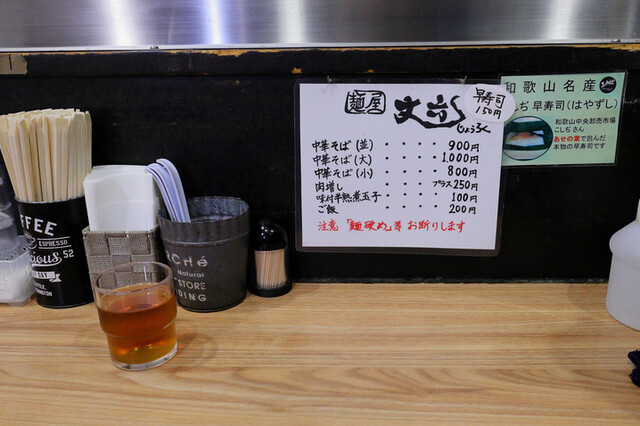 麺屋 丈六
じょうろく
早寿司
150円
中華そば(並)・・・・900円
中華そば(大)・・・・1,000円
中華そば(小)・・・・800円
肉増し・・・・プラス250円
味付半熟煮玉子・・・・100円
ご飯・・・・200円
注意「麺硬め」等お断りします
和歌山名産
こしぢ早寿司(はやずし)
和歌山中央卸売市場
こしぢさん
あせの葉で包んだ
本物の早寿司です
COFFEE
ESPRESSO
52
Natural
STORE